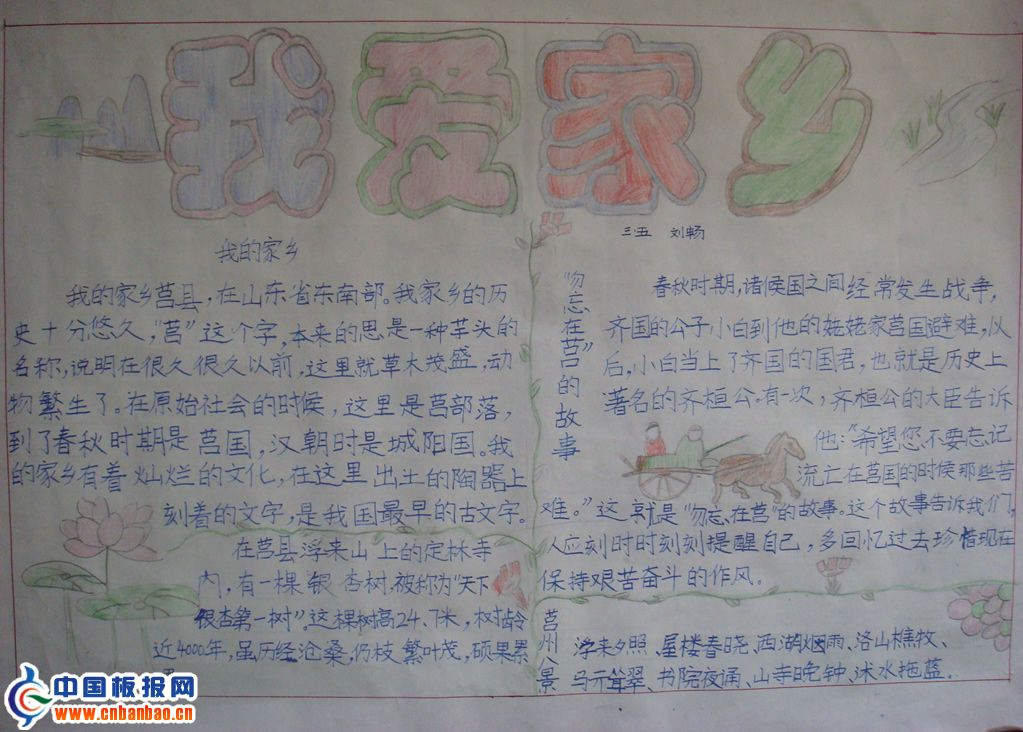 我爱家乡
三·五 刘畅
我的家乡
我的家乡莒县，在山东省东南部。我家乡的历
史十分悠久，“莒”这个字，本来的思是一种芋头的
名称，说明在很久很久以前，这里就草木茂盛，动
物繁生了。在原始社会的时候，这里是莒部落，
到了春秋时期是莒国，汉朝时是城阳国。我
的家乡有着灿烂的文化，在这里出土的陶器上
刻着的文字，是我国最早的古文字。
在莒县浮来山上的定林寺
内，有一棵银杏树，被称为“天下
银杏第一树”。这棵树高24.7米，树龄
近4000年，虽历经沧桑，仍枝繁叶茂，硕果累
“勿忘在莒”的故事
春秋时期，诸候国之间经常发生战争，
齐国的公子小白到他的姥姥家莒国避难，以
后，小白当上了齐国的国君，也就是历史上
著名的齐桓公。有一次，齐桓公的大臣告诉
他：“希望您不要忘记
流亡在莒国的时候那些苦
难。”这就是“勿忘在莒”的故事。这个故事告诉我们，
人应刻时时刻刻提醒自己，多回忆过去珍惜现在
保持艰苦奋斗的作风。
莒州八景
浮来夕照、屋楼春晓、西湖烟雨、洛山樵牧、
马亓耸翠、书院夜诵、山寺晚钟、沭水拖蓝。
中国板报网
www.cnbanbao.cn